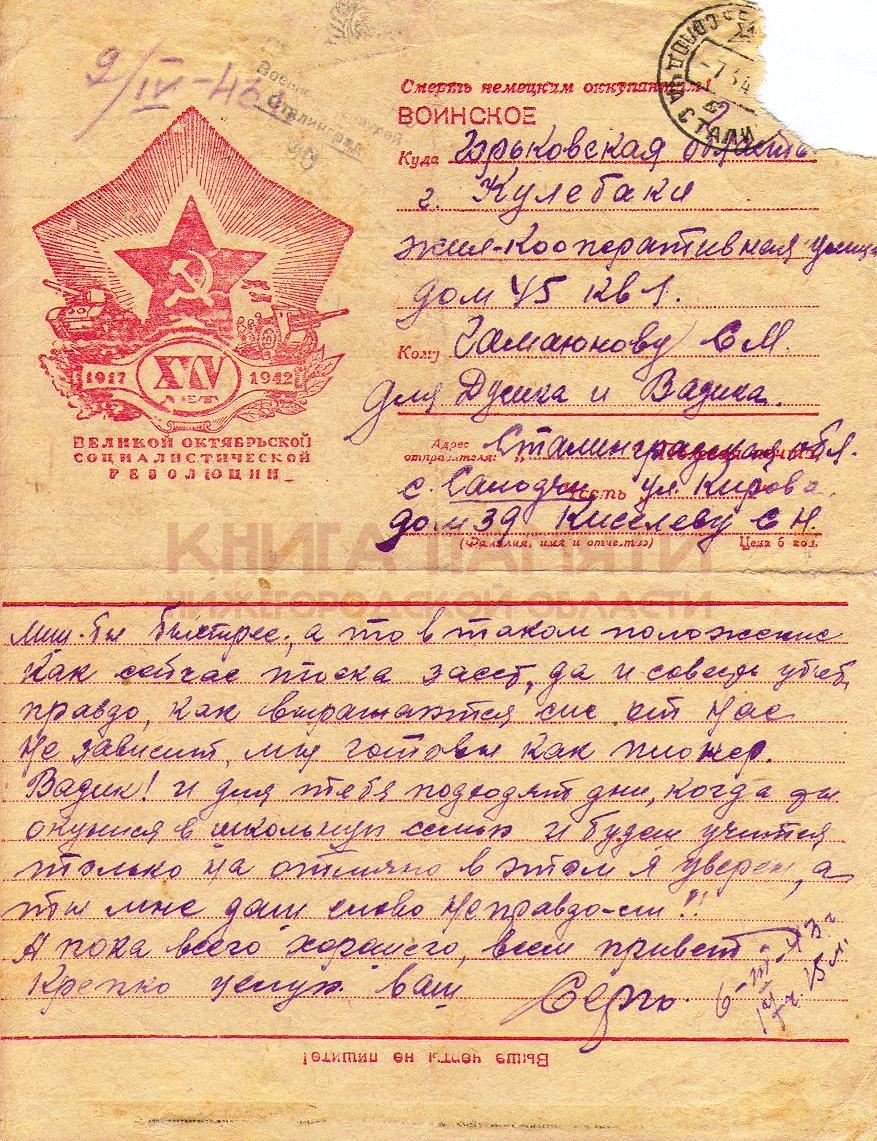 9/IV-43
Сталинград
Смерть немецким оккупантам!
ВОИНСКОЕ
Куда Горьковская область
г. Кулебаки
жил-Кооперативная улица
дом 45 кв 1.
Кому Гамаюнову С М.
для Дусика и Вадика.
1917 XXV ЛЕТ 1942
ВЕЛИКОЙ ОКТЯБРЬСКОЙ
СОЦИАЛИСТИЧЕСКОЙ
РЕВОЛЮЦИИ
Адрес отправителя: Сталинградская обл.
с. Солодчи, ул. Кирова.
дом 39 Киселеву С Н.
(Фамилия, имя и отчество) Цена 5 коп.
КНИГА ПАМЯТИ
НИЖЕГОРОДСКОЙ ОБЛАСТИ
лиш-бы быстрее, а то в таком положение
как сейчас тоска заест, да и совсем убьет,
правдо, как выражаются сие от нас
не зависит, мы готовы как пионер.
Вадик! и для тебя подходят дни, когда ты
окунися в школьную семью и будеш учится
только на отлично в этом я уверен, а
ты мне даш слово Неправдо-ли!!
А пока всего хорошего, всем привет
Крепко целую ваш
6-III-43 г
15 л.
Выше черты не пишите!